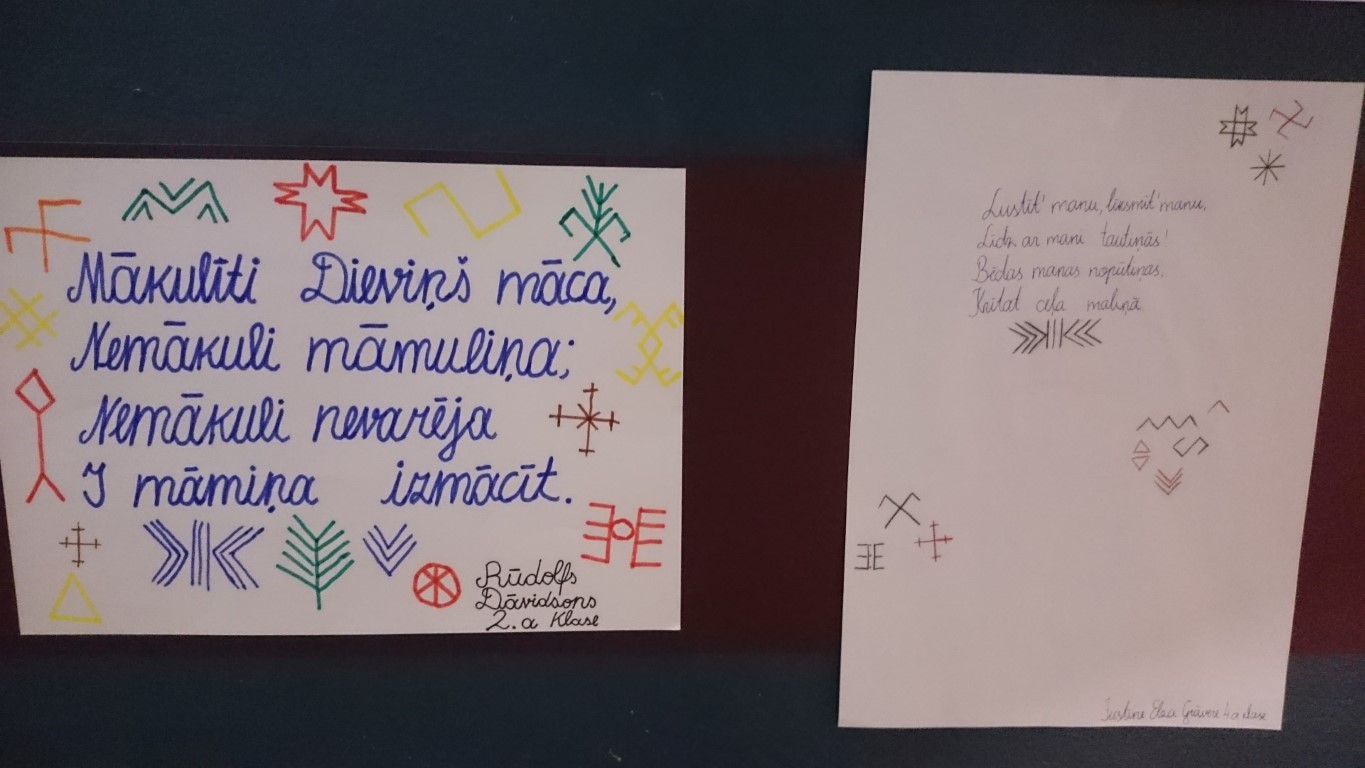 Mākulīti Dieviņš māca,
Nemākuli māmuliņa;
Nemākuli nevarēja
I māmiņa izmācīt.
Rūdolfs
Dāvidsons
2. a klase
Lustīt' manu, liksmīt' manu,
Līdz ar mani tautiņās!
Bēdas manas nopūtiņas,
Krītat ceļa maliņā
Elza 4. a klase